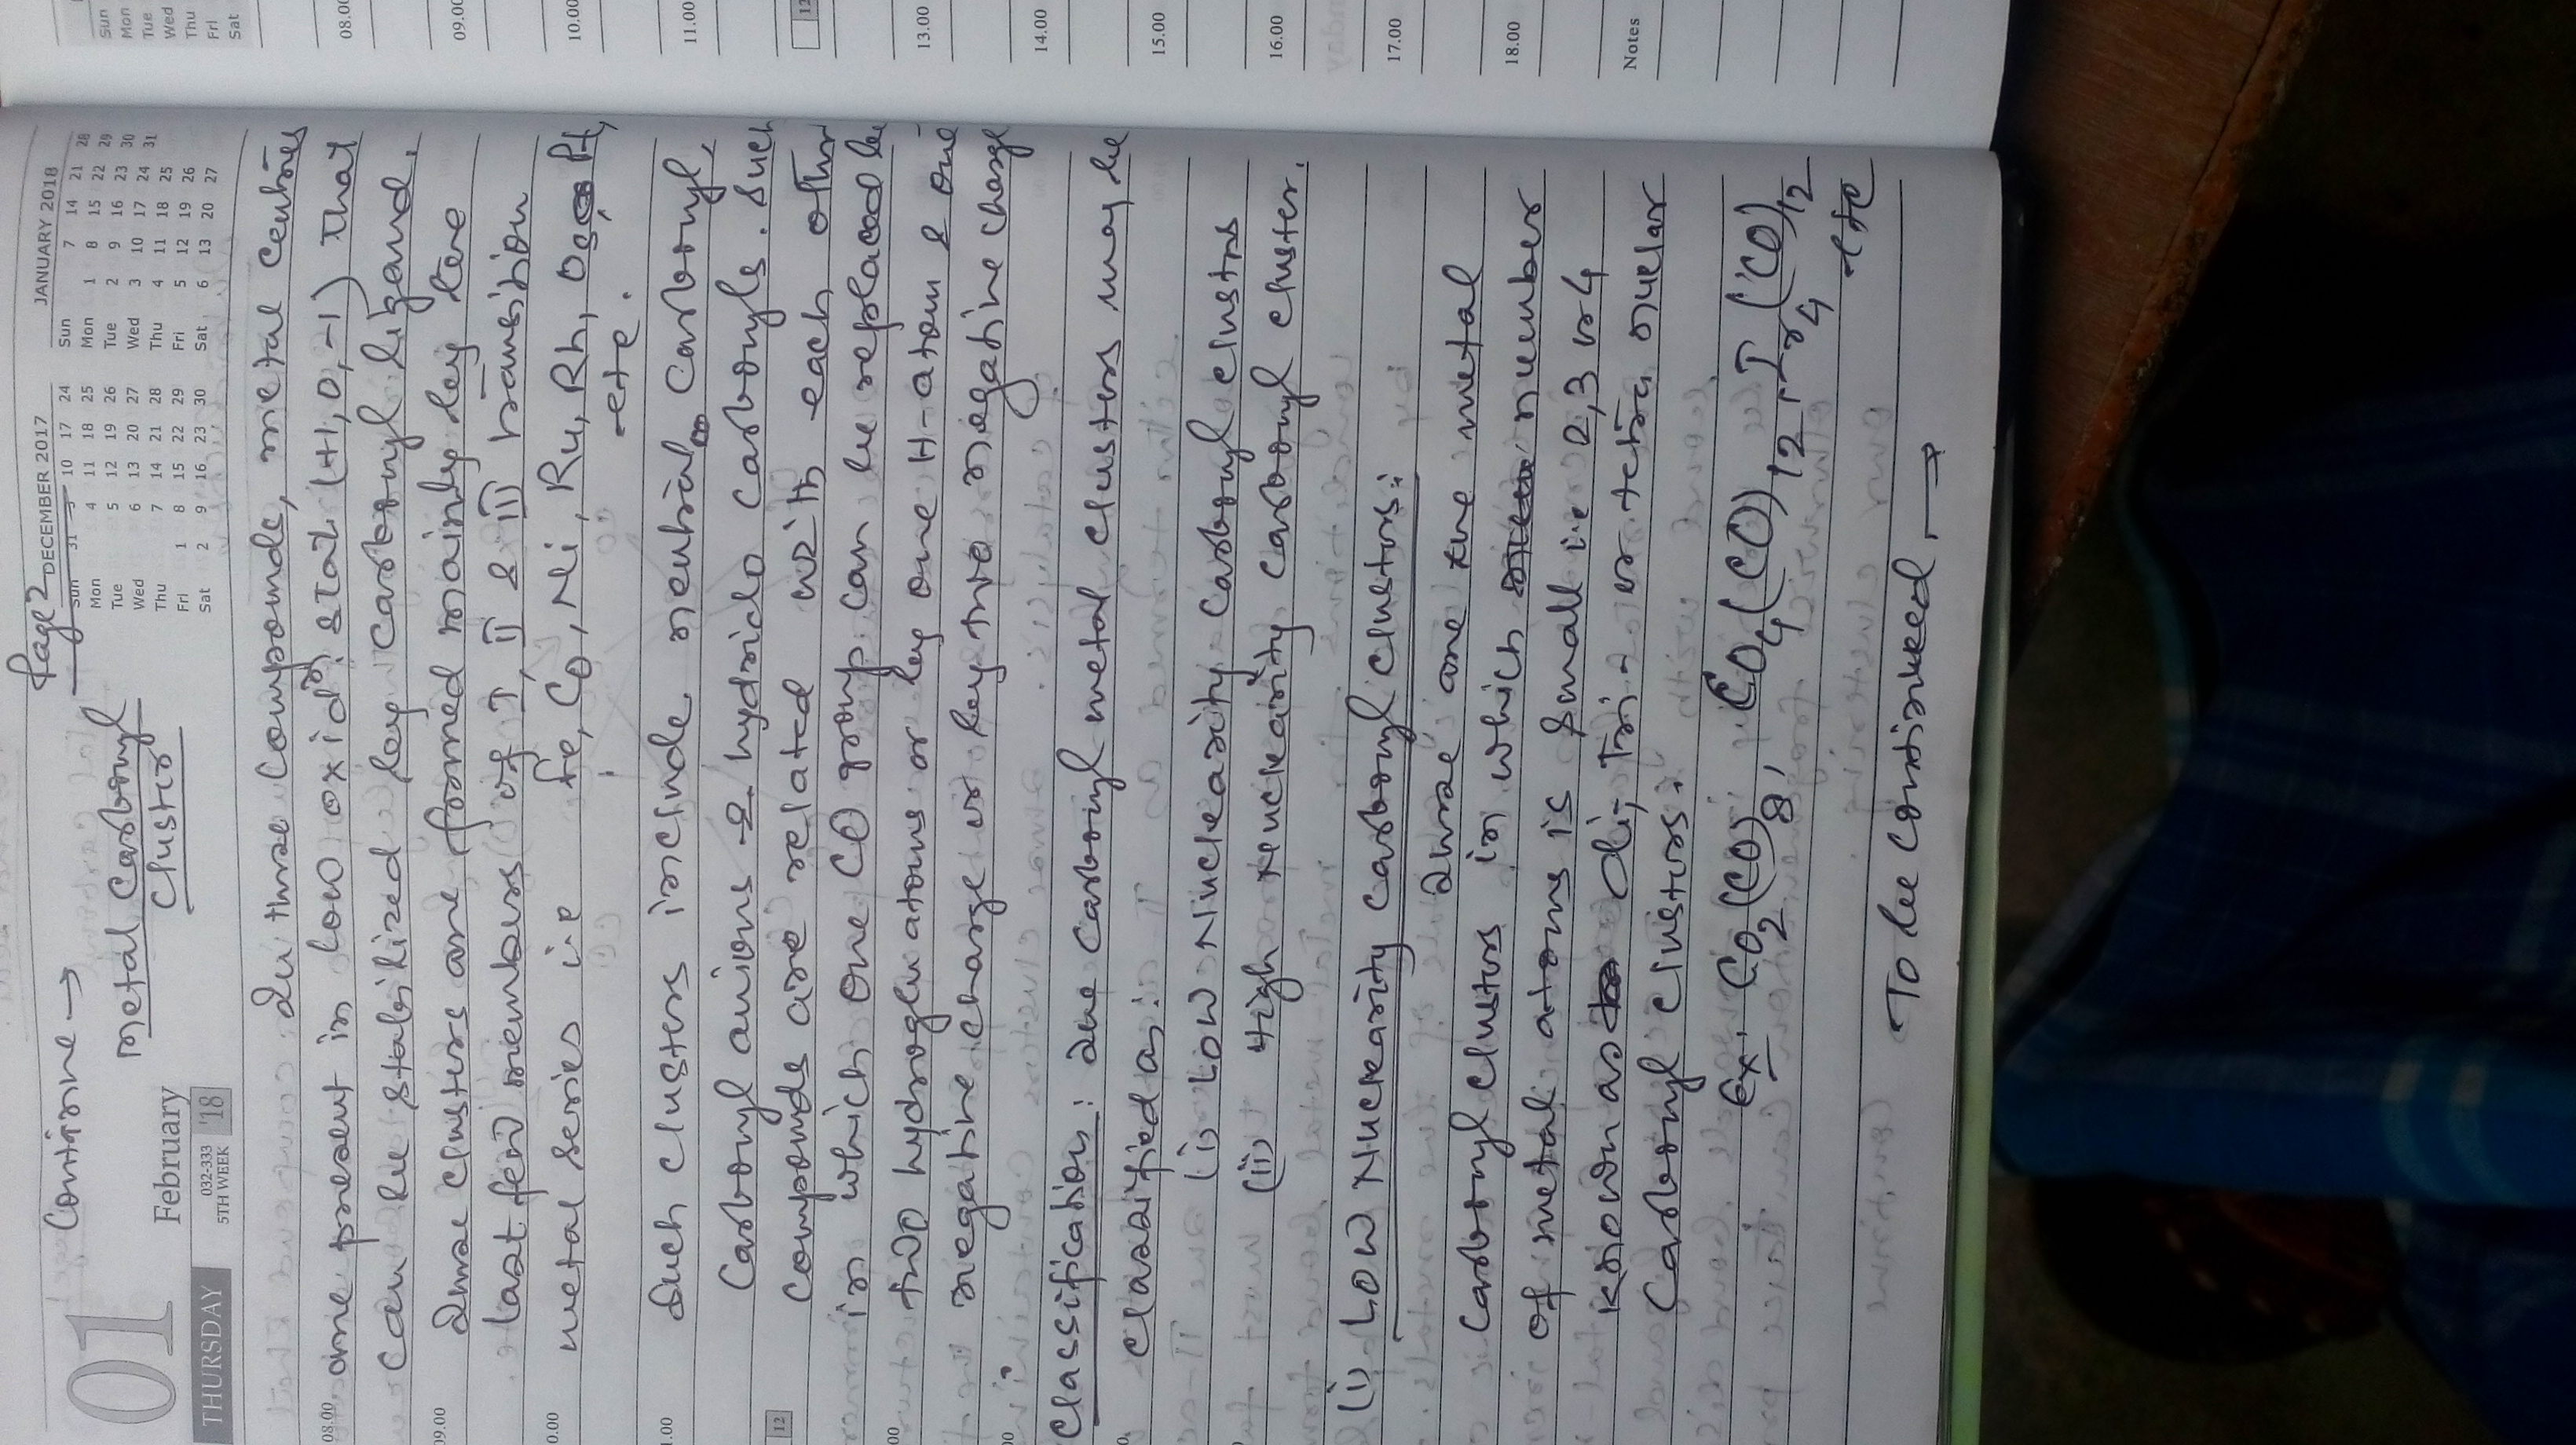 Page 2
Continue →
Metal Carbonyl
Cluster
01
February
THURSDAY
032-333
5TH WEEK
'18
DECEMBER 2017
Sun 31 3 10 17 24
Mon 4 11 18 25
Tue 5 12 19 26
Wed 6 13 20 27
Thu 7 14 21 28
Fri 1 8 15 22 29
Sat 2 9 16 23 30
JANUARY 2018
Sun 7 14 21 28
Mon 1 8 15 22 29
Tue 2 9 16 23 30
Wed 3 10 17 24 31
Thu 4 11 18 25
Fri 5 12 19 26
Sat 6 13 20 27
In these compounds, metal centres
08.00 are present in low oxidn. state (+1, 0, -1) that
can be stabilized by carbonyl ligand.
09.00 These clusters are formed mainly by the
last few members of I, II & III transition
metal series i.e Fe, Co, Ni, Ru, Rh, Os, Pt,
etc.
Such clusters include neutral Carbonyl,
Carbonyl anions & hydrido Carbonyls. Such
12 compounds are related with each other
in which one CO group can be replaced by
two hydrogen atoms or by one H-atom & one
negative charge or by two negative charge
Classification: The Carbonyl metal clusters may be
classified as:
(i) Low Nuclearity Carbonyl clusters
(ii) High Nuclearity Carbonyl cluster.
(i) Low Nuclearity Carbonyl clusters:
These are the metal
Carbonyl clusters in which number
of metal atoms is small i.e 2,3 or 4
known as di, Tri- or tetra nuclear
Carbonyl clusters.
Ex. Co2(CO)8, Co4(CO)12, Ir4(CO)12
etc
To be continued →
Sun
Mon
Tue
Wed
Thu
Fri
Sat
08.00
09.00
10.00
11.00
12
13.00
14.00
15.00
16.00
17.00
18.00
Notes